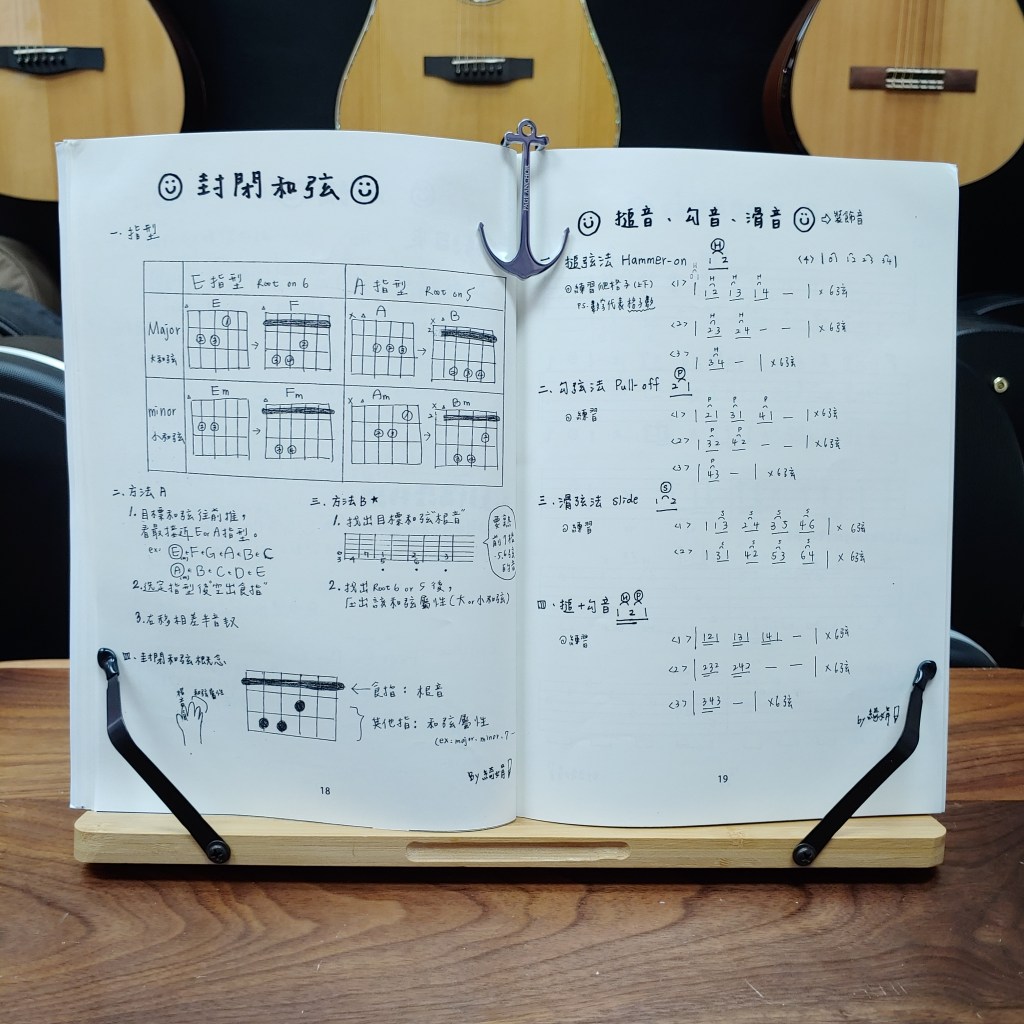 封閉和弦
一、指型
E 指型 Root on 6
A 指型 Root on 5
Major
大和弦
E
F
A
B
minor
小和弦
Em
Fm
Am
Bm
二、方法A
1. 目標和弦往前推，
看最接近E or A指型。
ex: E→F→G→A→B→C
A→B→C→D→E
2. 選定指型後"空出食指"
3. 右移相差半音數
三、方法B★
1. 找出目標和弦"根音"
2. 找出Root 6 or 5 後，
壓出該和弦屬性(大or小和弦)
四、封閉和弦概念
←食指：根音
其他指：和弦屬性
(ex: major. minor. 7…
By
18
PAGE ANCHOR
搥音、勾音、滑音 ⇨裝飾音
一、搥弦法 Hammer-on H 1 2
⊙練習爬格子(上下)
P.S. 數字代表格子數
<1> | 12 13 14 — | ×6弦
<2> | 23 24 — — | ×6弦
<3> | 34 — | ×6弦
<4> | 01 02 03 04 |
二、勾弦法 Pull-off P 2 1
⊙練習
<1> | 21 31 41 — | ×6弦
<2> | 32 42 — — | ×6弦
<3> | 43 — | ×6弦
三、滑弦法 slide S 1 2
⊙練習
<1> | 13 24 35 46 | ×6弦
<2> | 31 42 53 64 | ×6弦
四、搥+勾音 H P 1 2 1
⊙練習
<1> | 121 131 141 — | ×6弦
<2> | 232 242 — — | ×6弦
<3> | 343 — | ×6弦
by
19